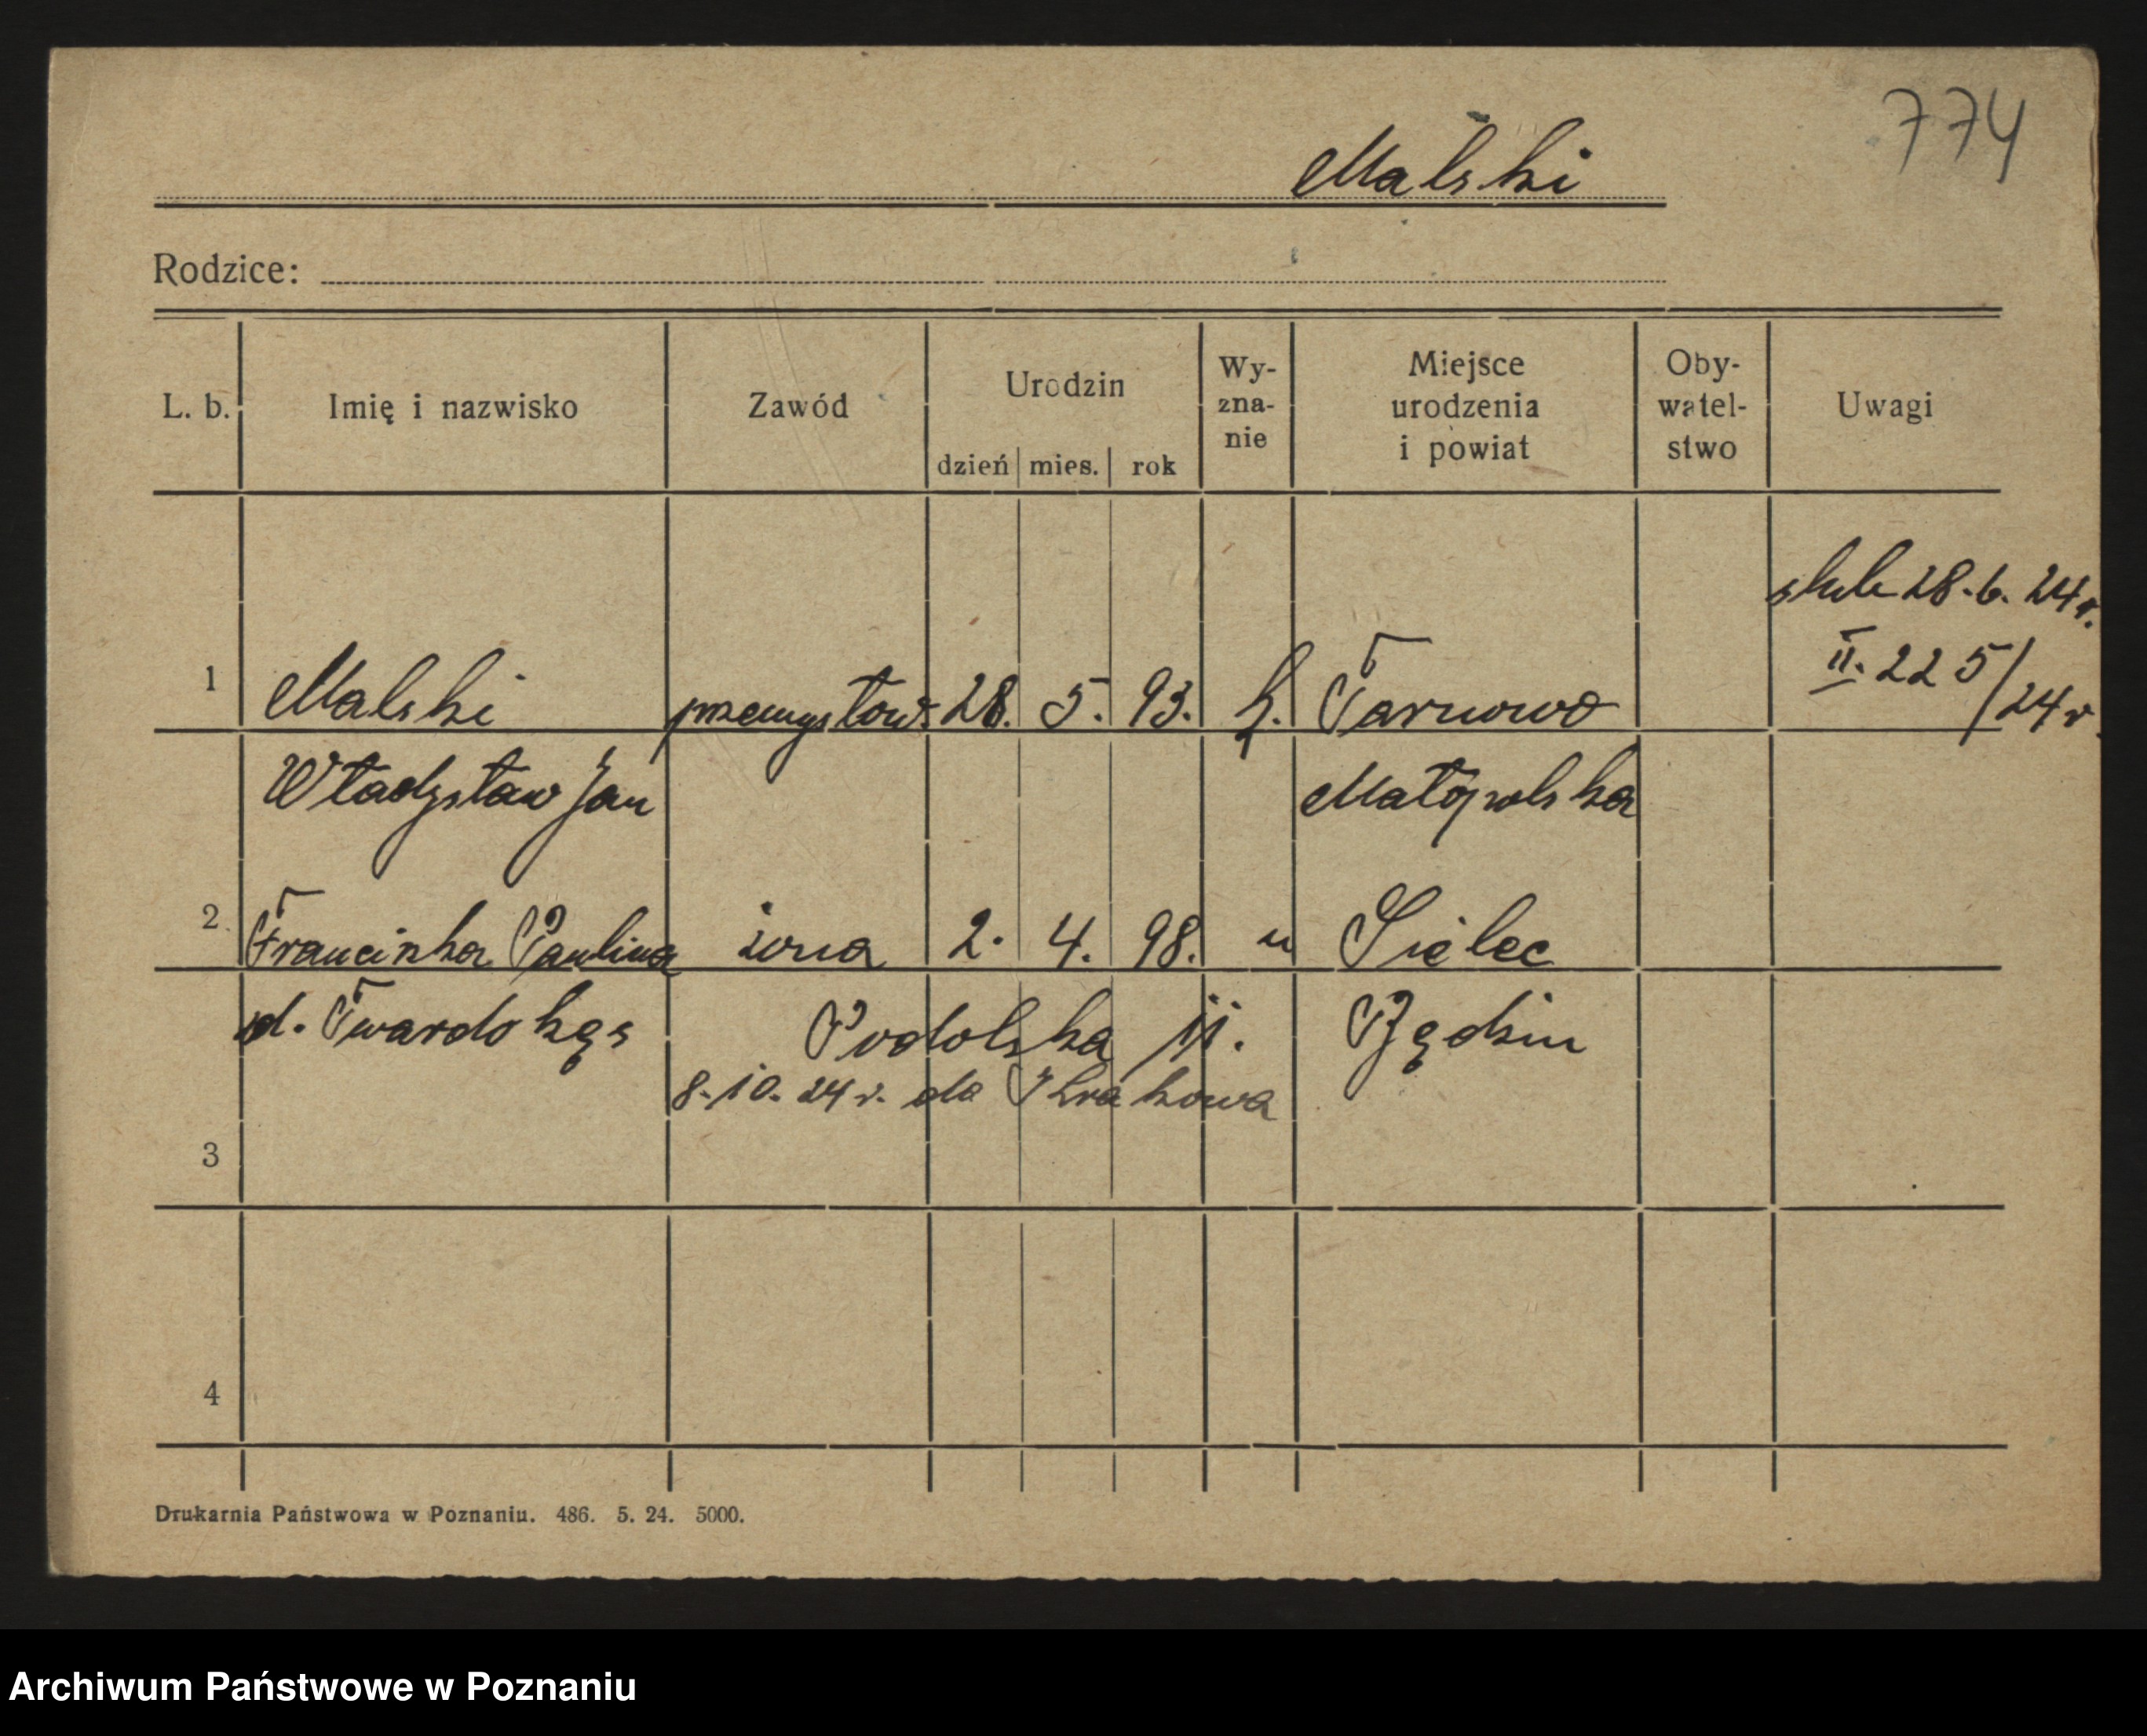 774
Malski
Rodzice:
L. b. Imię i nazwisko Zawód Urodzin Wy- Miejsce Oby- Uwagi
zna- urodzenia watel-
nie i powiat stwo
dzień mies. rok
ślub 28. 6. 24 r.
1 Malski przemysłow. 28. 5. 93. k. Tarnowo II. 225/24 r.
Władysław Jan Małopolska
2 Franciszka Paulina żona 2. 4. 98. " Sielec
d. Twardokęs Podolska 11. Będzin
8. 10. 24 r. do Krakowa
3
4
Drukarnia Państwowa w Poznaniu. 486. 5. 24. 5000.
Archiwum Państwowe w Poznaniu